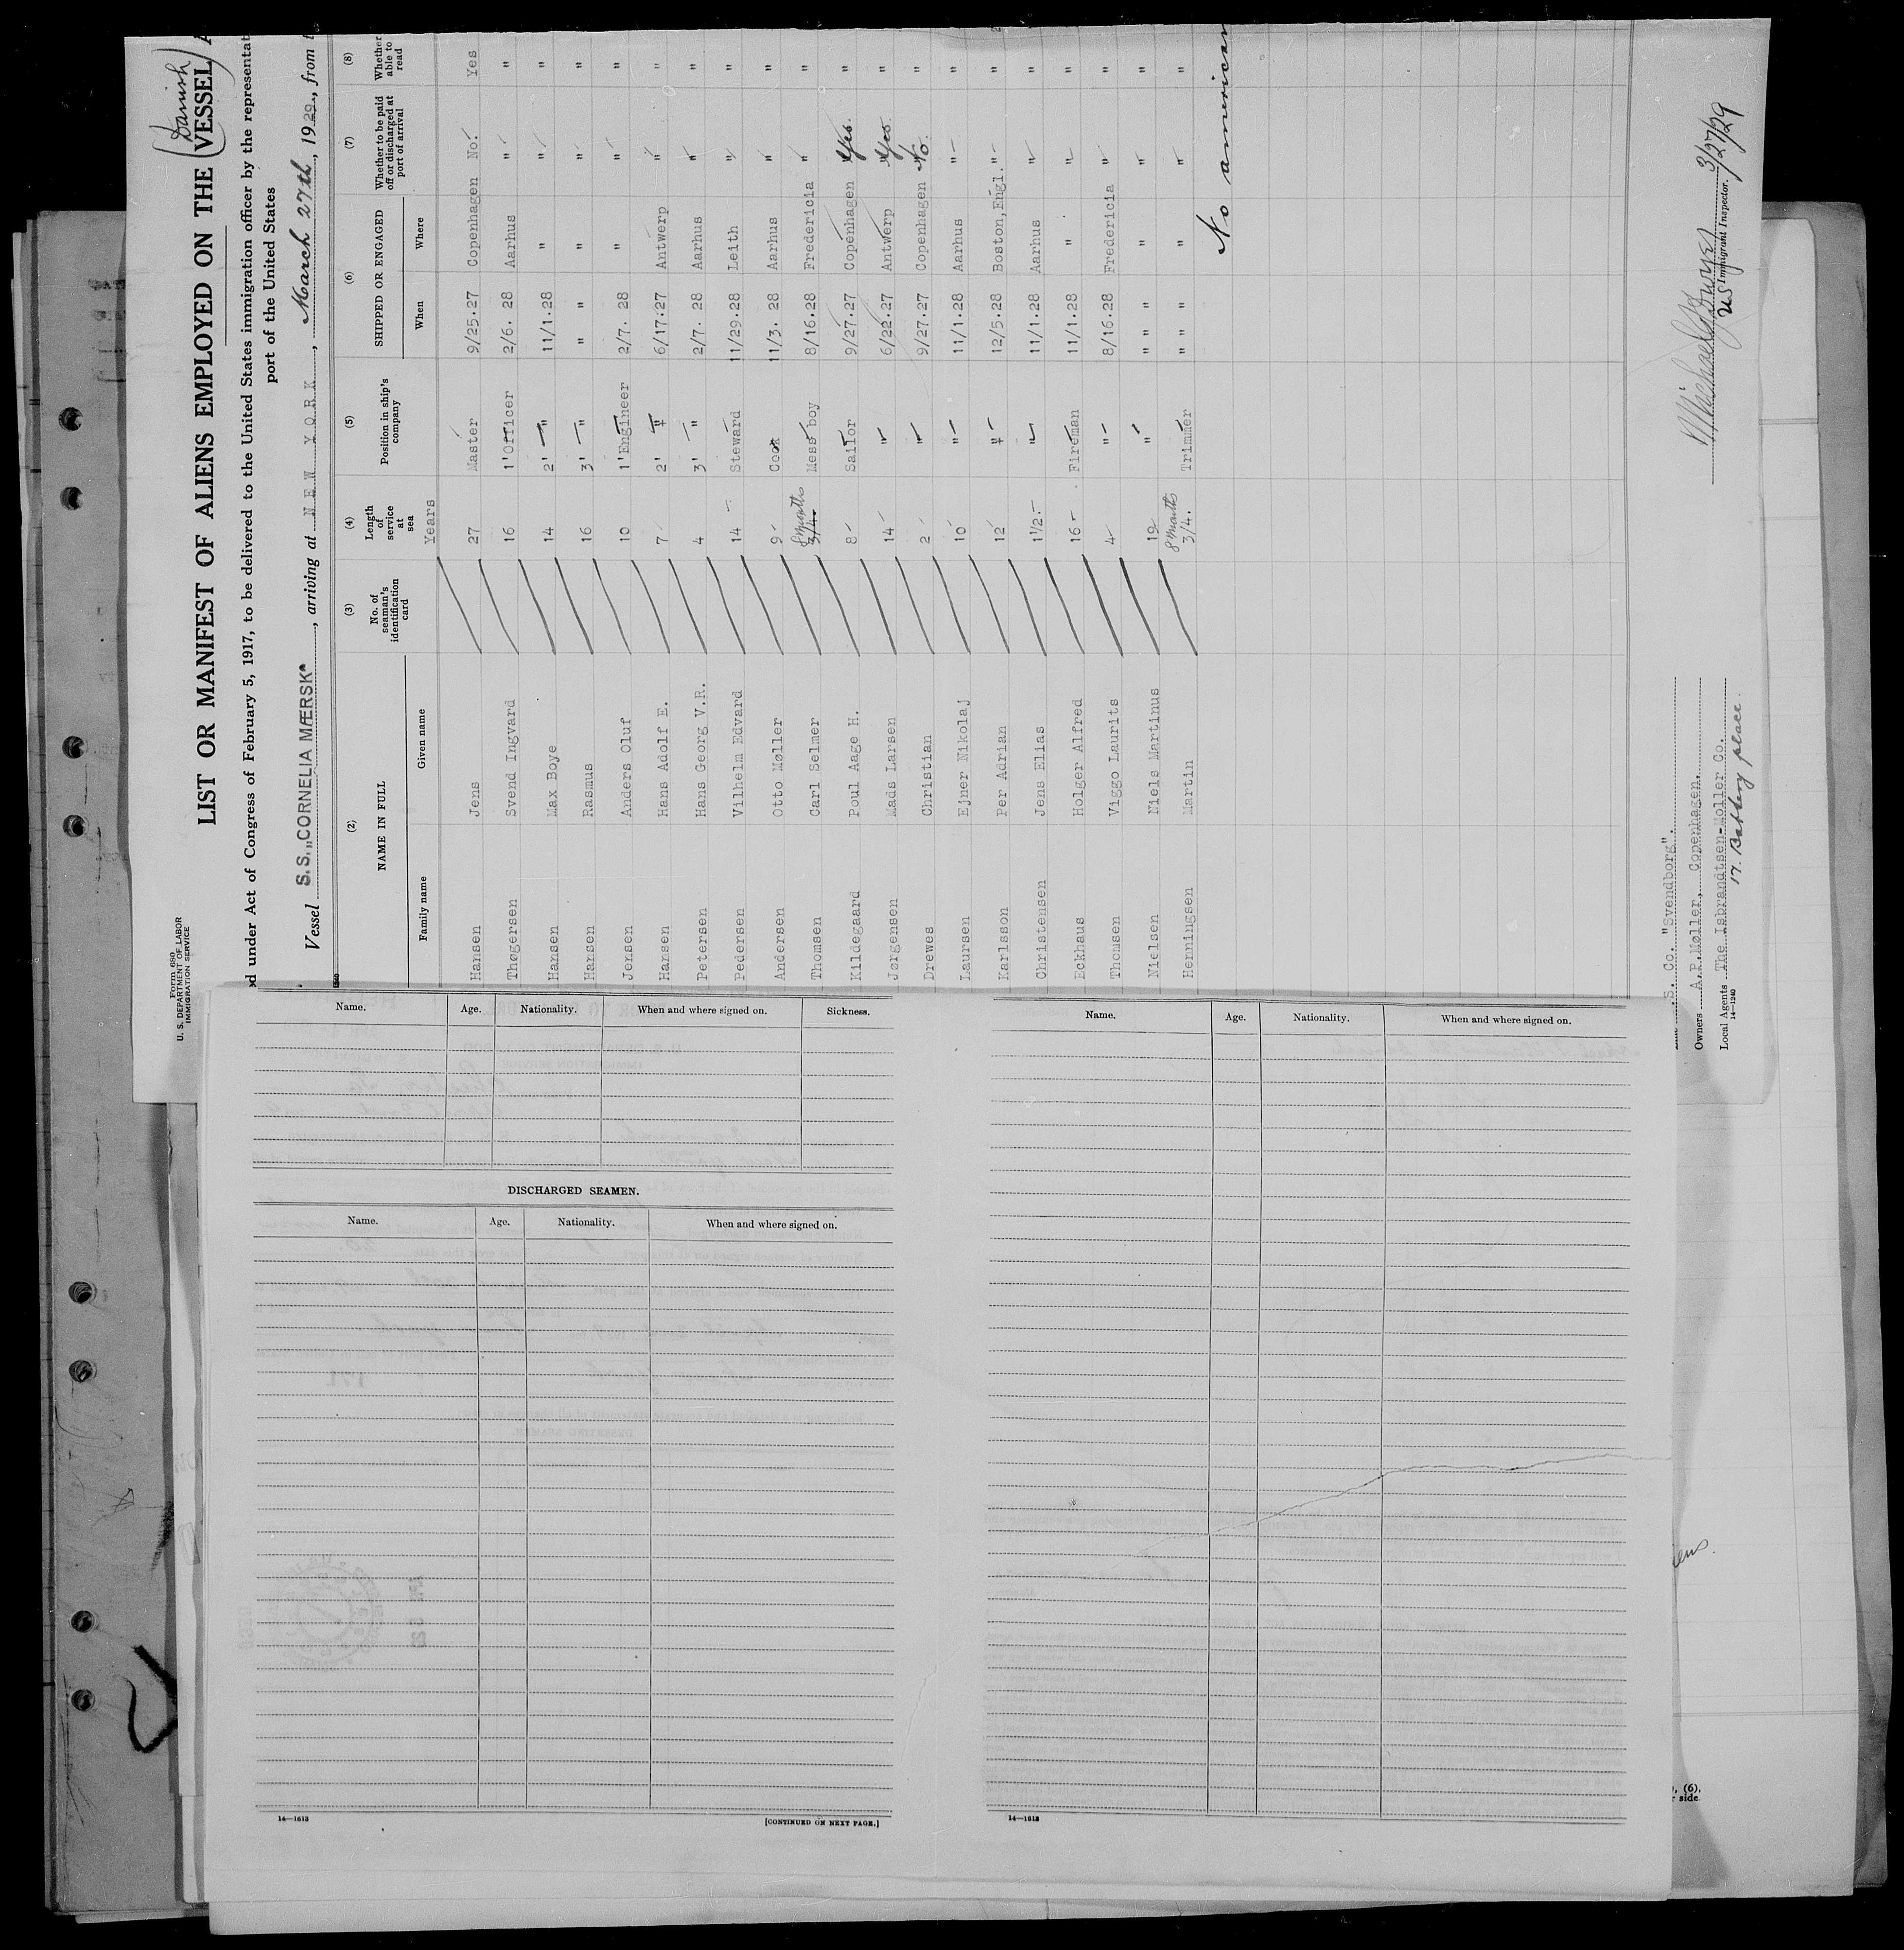 Form 680
U. S. DEPARTMENT OF LABOR
IMMIGRATION SERVICE
(Danish)
LIST OR MANIFEST OF ALIENS EMPLOYED ON THE VESSEL
under Act of Congress of February 5, 1917, to be delivered to the United States immigration officer by the representat
port of the United States
Vessel S.S. „CORNELIA MÆRSK", arriving at NEW YORK, March 27th, 1929, from
(2) (3) (4) (5) (6) (7) (8)
NAME IN FULL No. of seaman's identification card Length of service at sea Position in ship's company SHIPPED OR ENGAGED Whether to be paid off or discharged at port of arrival Whether able to read
Family name Given name Years When Where
Hansen Jens 27 Master 9/25.27 Copenhagen No. Yes
Thøgersen Svend Ingvard 16 1'Officer 2/6. 28 Aarhus " "
Hansen Max Boye 14 2' " 11/1.28 " " "
Hansen Rasmus 16 3' " " " " " "
Jensen Anders Oluf 10 1'Engineer 2/7. 28 " " "
Hansen Hans Adolf E. 7 2' " 6/17.27 Antwerp " "
Petersen Hans Georg V.R. 4 3' " 2/7. 28 Aarhus " "
Pedersen Vilhelm Edvard 14 Steward 11/29.28 Leith " "
Andersen Otto Møller 9 Cook 11/3. 28 Aarhus " "
Thomsen Carl Selmer 8 months 3/4. Mess boy 8/16.28 Fredericia " "
Kildegaard Poul Aage H. 8 Sailor 9/27.27 Copenhagen Yes. "
Jørgensen Mads Larsen 14 " 6/22.27 Antwerp Yes "
Drewes Christian 2 " 9/27.27 Copenhagen No. "
Laursen Ejner Nikolaj 10 " 11/1.28 Aarhus " "
Karlsson Per Adrian 12 " 12/5.28 Boston,Engl. " "
Christensen Jens Elias 1 1/2. " 11/1.28 Aarhus " "
Eckhaus Holger Alfred 16 Fireman 11/1.28 " " "
Thomsen Viggo Laurits 4 " 8/16.28 Fredericia " "
Nielsen Niels Martinus 19 " " " " " " "
Henningsen Martin 8 months 3/4. Trimmer " " " " " "
No american
S. Co. "Svendborg".
Owners A.P.Møller, Copenhagen.
Local Agents The Isbrandtsen-Moller Co.
14—1240
17. Battery place
3/27/29
US Immigrant Inspector.
Name. Age. Nationality. When and where signed on. Sickness.
DISCHARGED SEAMEN.
Name. Age. Nationality. When and where signed on.
14—1613
[CONTINUED ON NEXT PAGE.]
Name. Age. Nationality. When and where signed on.
14—1613
(6),
side.